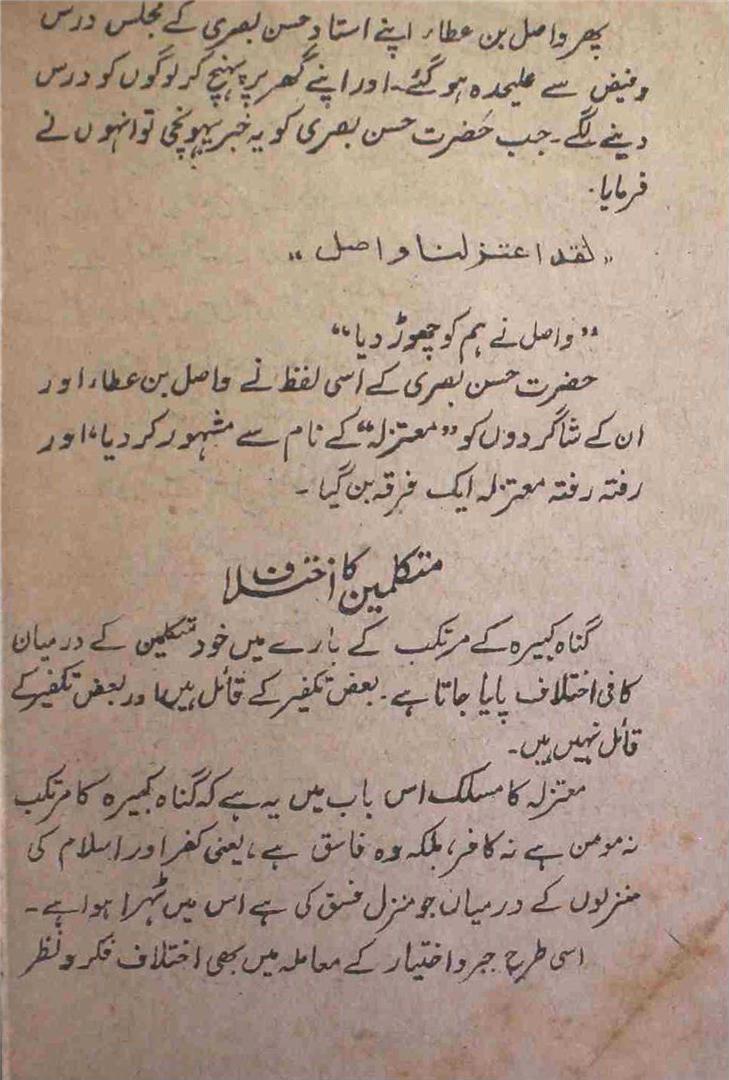 پھر واصل بن عطاء اپنے استاد حسن بصری کے مجلس درس
وفیض سے علیحدہ ہوگئے۔ اور اپنے گھر پر پہنچ کر لوگوں کو درس
دینے لگے۔ جب حضرت حسن بصری کو یہ خبر پہونچی تو انہوں نے
فرمایا۔
"لقد اعتزلنا واصل"
"واصل نے ہم کو چھوڑ دیا"
حضرت حسن بصری کے اسی لفظ نے واصل بن عطاء اور
ان کے شاگردوں کو "معتزلہ" کے نام سے مشہور کردیا، اور
رفتہ رفتہ معتزلہ ایک فرقہ بن گیا۔
متکلمین کا اختلاف
گناہ کبیرہ کے مرتکب کے بارے میں خود متکلمین کے درمیان
کافی اختلاف پایا جاتا ہے۔ بعض تکفیر کے قائل ہیں اور بعض تکفیر کے
قائل نہیں ہیں۔
معتزلہ کا مسلک اس باب میں یہ ہے کہ گناہ کبیرہ کا مرتکب
نہ مومن ہے نہ کافر، بلکہ وہ فاسق ہے، یعنی کفر اور اسلام کی
منزلوں کے درمیان جو منزل فسق کی ہے اس میں ٹہرا ہوا ہے۔
اسی طرح جبر واختیار کے معاملہ میں بھی اختلاف فکر ونظر